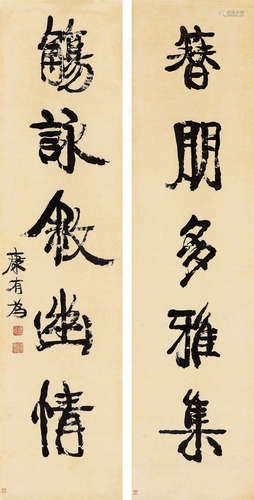 簪朋多雅集
觴詠敘幽情
康有為